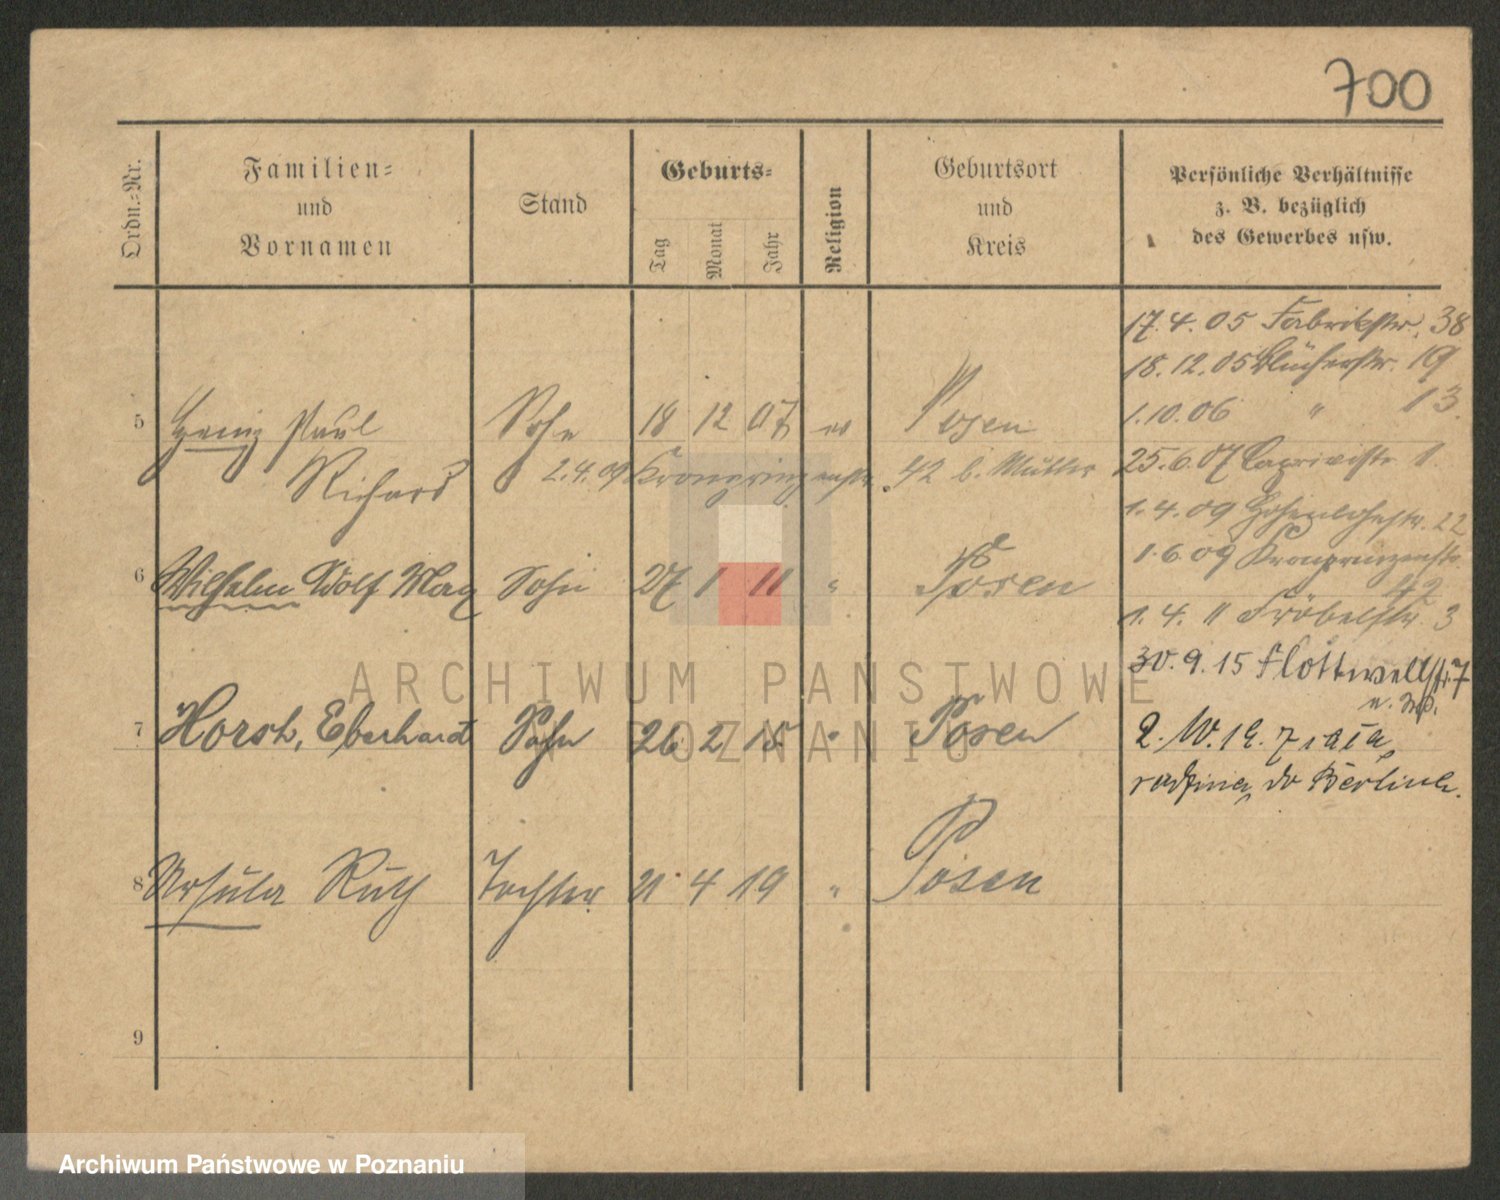 700
Ordn.-Nr.
Familien-
und
Vornamen
Stand
Geburts-
Tag
Monat
Jahr
Religion
Geburtsort
und
Kreis
Persönliche Verhältnisse
z. B. bezüglich
des Gewerbes usw.
17.4.05 Fabrikstr. 38
18.12.05 Blücherstr. 19
1.10.06 " 13.
5 Heinz Paul Sohn 18 12 07 ev Posen
Richard
2.4.09 Kronprinzenstr. 42 b. Mutter
25.6.07 Caprivistr. 1.
1.4.09 Hohenlohestr. 22
1.6.09 Kronprinzenstr.
42
6 Wilhelm Adolf Max Sohn 27 1 11 " Posen
1.4. 11 Fröbelstr. 3
30.9.15 Flottwellstr. 7
7 Horst, Eberhard Sohn 26 2 15 " Posen
rodziną do Berlina.
8 Ursula Ruth Tochter 21 4 19 " Posen
9
ARCHIWUM PAŃSTWOWE
W POZNANIU
Archiwum Państwowe w Poznaniu